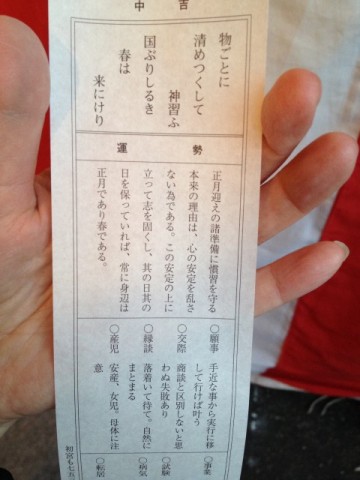 中吉
物ごとに
清めつくして
神習ふ
国ぶりしるき
春は
来にけり
運勢
正月迎えの諸準備に慣習を守る
本来の理由は、心の安定を乱さ
ない為である。この安定の上に
立って志を固くし、其の日其の
日を保っていれば、常に身辺は
正月であり春である。
○願事
手近な事から実行に移
して行けば叶う
○交際
商談と区別しないと思
わぬ失敗あり
○縁談
落着いて待て。自然に
まとまる
○産児
安産、女児。母体に注
意
○事業
○試験
○病気
○転居
初宮も七五